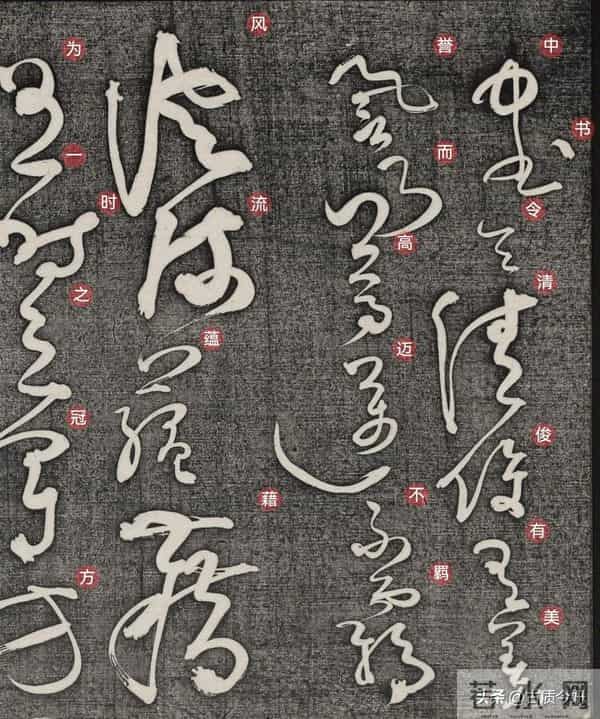 中书令清俊有美
誉而高迈不羁
风流蕴藉
为一时之冠方
头条@古质今妍